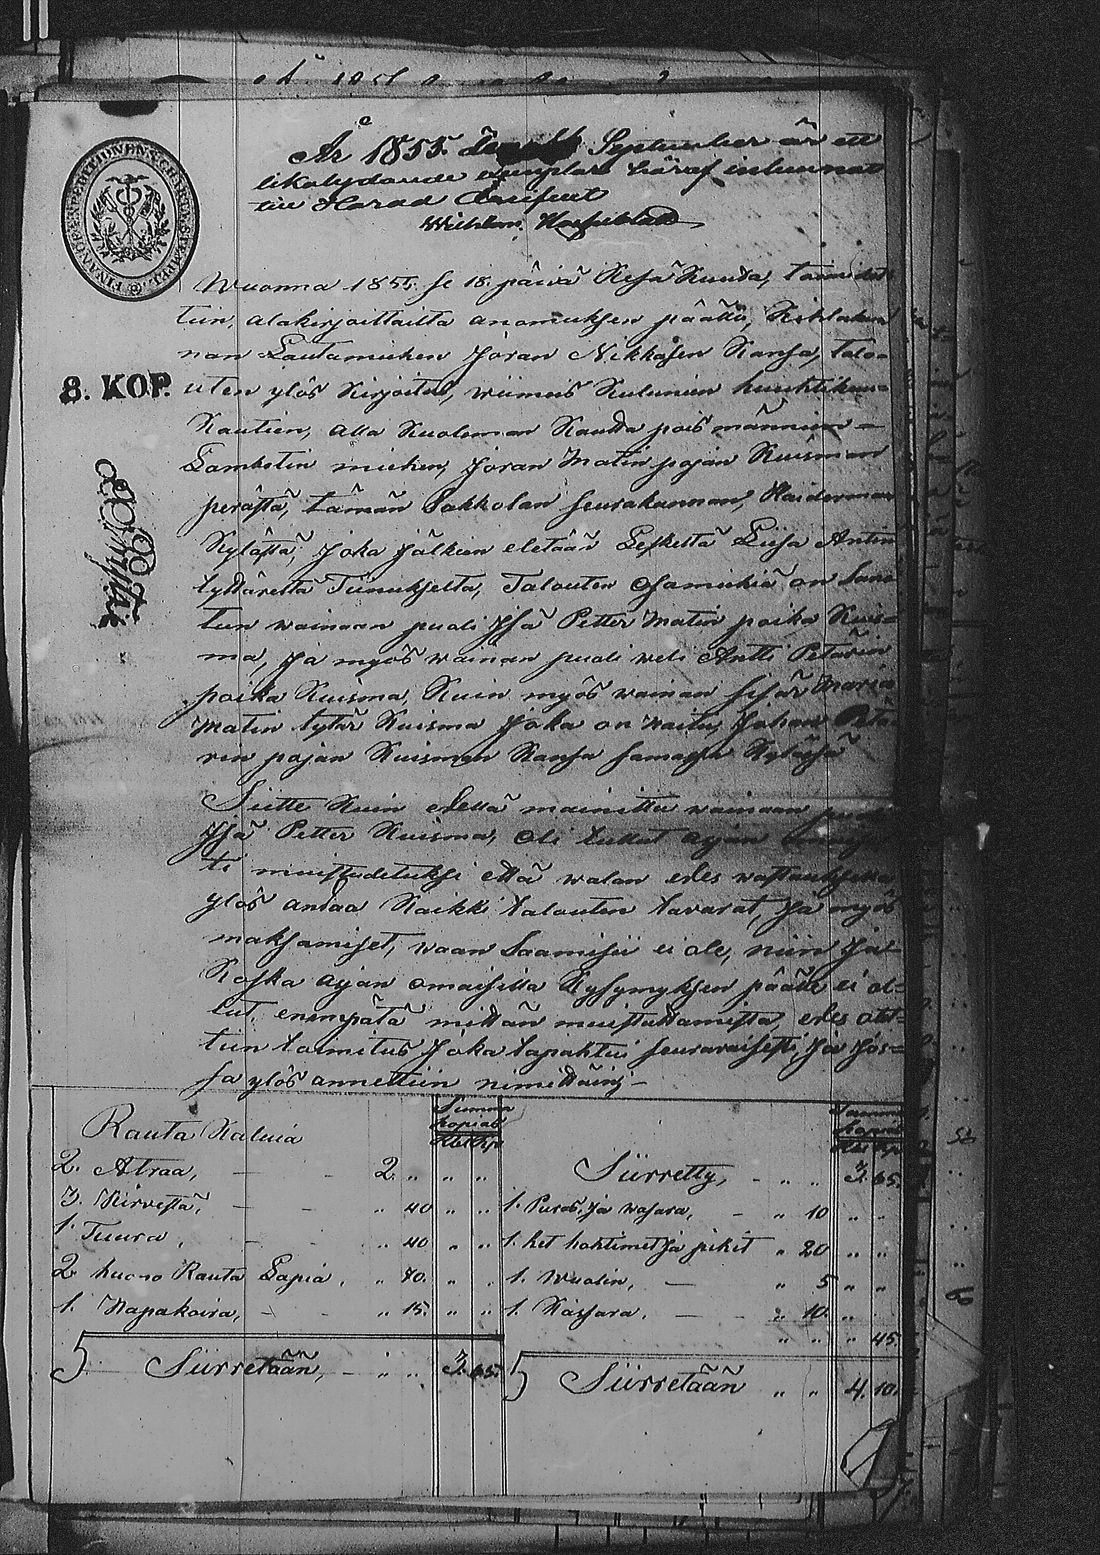 År 1855. September är ett
likalydande exemplar häraf inlemnat
till Härad
Wilhelm
FINANCE EXPEDITIONENS CHARTÆ STEMPEL
8. KOP.
Wuonna 1855. se 18. päivä Kesä Kuuda, toimitet-
tiin, alakirjoittailta anomuksen päälle, Kihlakun
nan Lautamiehen Jöran Nikkasen Kansa, talo-
uten ylös kirjoitus, wiimeis Kuluneen huuhtikuun
Kautien, alla Kuoleman Kautta pois männeen
Lambotin miehen, Jöran Matin pojan Kuisman
perästä, tämän Sakkolan seurakunnan, Haiderman
Kylästä, Joka Jälkeen eletään Leskeltä Liisa Antin
tyttäreltä Tiinukselta, Talouten Osamiehiä on
tun wainaan puoli Isä Petter Matin poika Kuis=
ma, Ja myös wainan puoli weli Antti Petärin
poika Kuisma, Kuin myös wainan sisär Maria
Matin tytär Kuisma Joka on naitu, Johan Petä
rin pojan Kuisman Kansa samassa Kylässä
Siitte Kuin edellä mainittu wainaan puoli
Isä Petter Kuisma, Oli tullut ajan
ti muistutetuksi että walan edes wastauksella
ylös andaa Kaikki talouten tavarat, Ja myös
maksamiset, waan Saamisii ei ole, niin Ja
Koska ajan omaisilla Kysymyksen päälle ei ol=
lut enempätä mittän muistuttamista, edes otet=
tiin toimitus Joka tapahtui seuraavaisesti, Ja Jos=
sa ylös annettiin nimittäin;
Rauta Kaluia
Summa Kopiat
Rbl Kp
2. Atraa, — — 2. „ „ „
3. Kirvestä, — — „ 40 „ „
1. Tuura, — — „ 40 „ „
2 huono Rauta Lapia, „ 80. „ „
1. Napakaira, — — „ 15. „ „
Siirretään, — „ „ 3. 65.
Summa Kopiat
Rbl Kp
Siirretty, — „ „ 3. 65.
1. Puras, Ja wasara, — „ 10 „ „
1. het hohtimet Ja pihit „ 20 „ „
1. Wuolin, — „ 5 „ „
1. Kässara, — „ 10 „
„ „ „ 45.
Siirretään „ „ 4. 10.